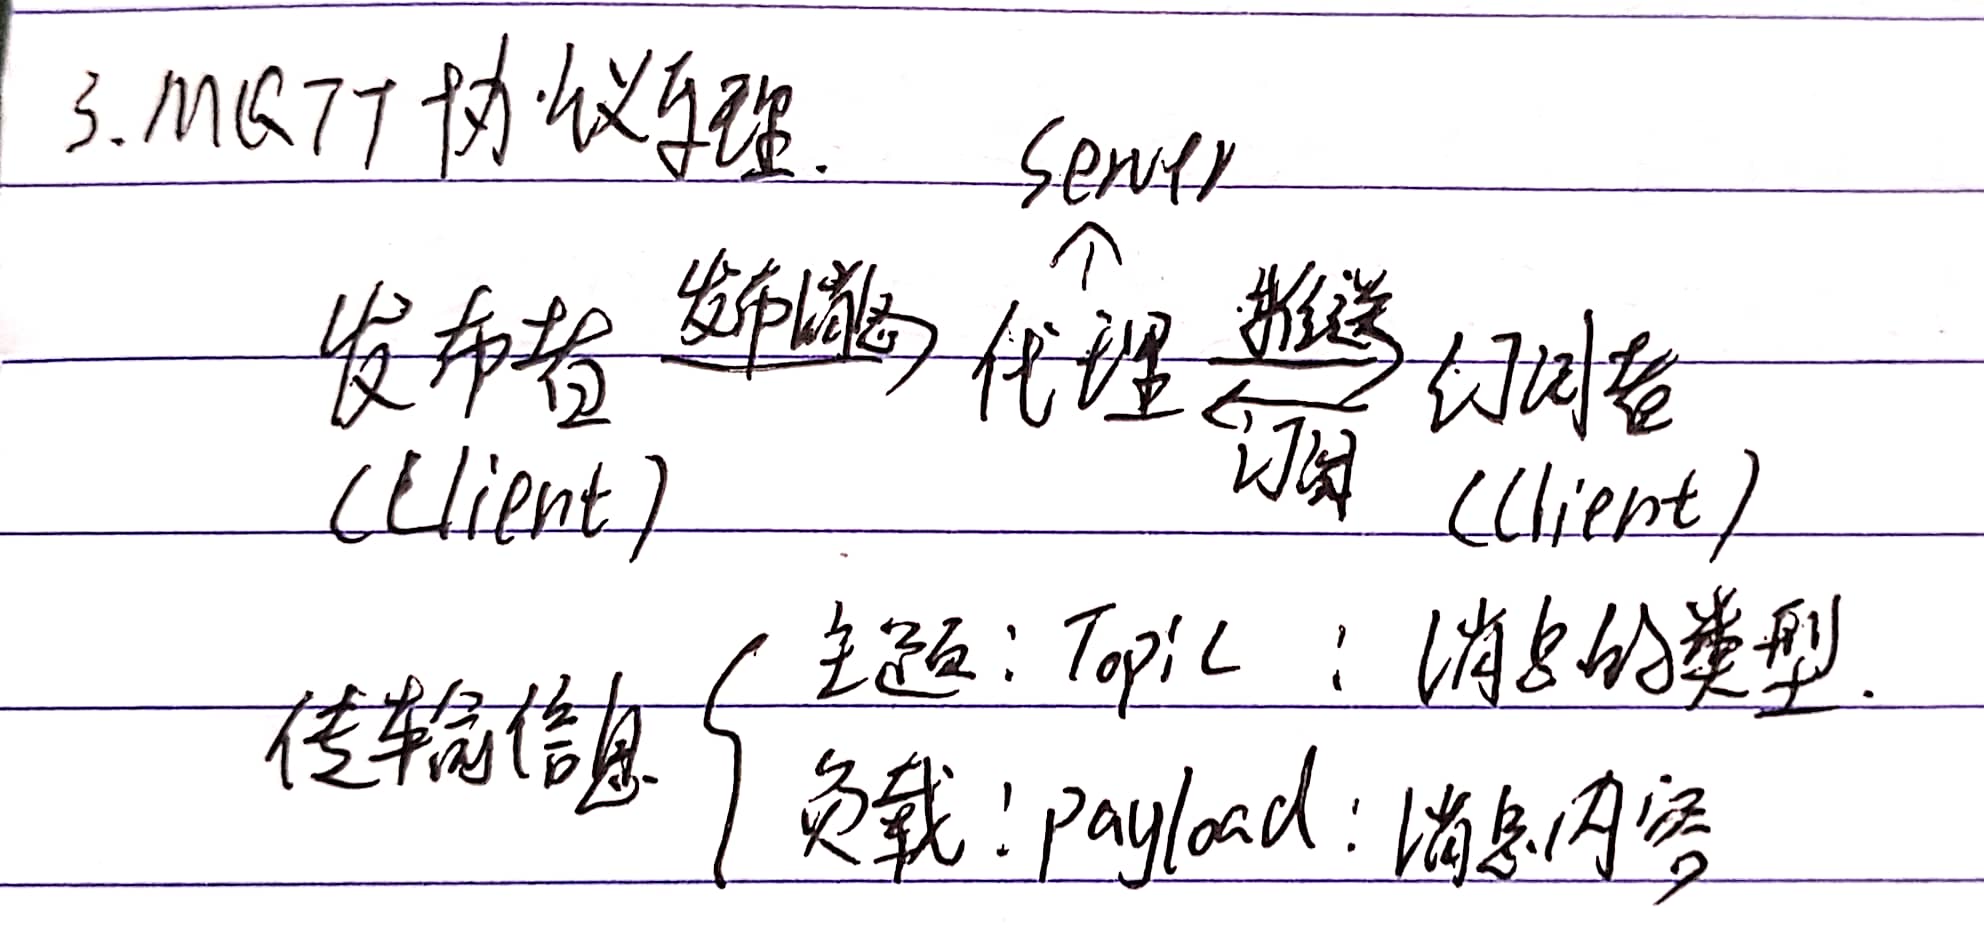 3. MQTT 协议原理.
Server
↑
发布者 发布消息 代理 推送 订阅者
订阅
(Client) (Client)
传输信息
主题: Topic : 消息的类型.
负载: payload: 消息内容